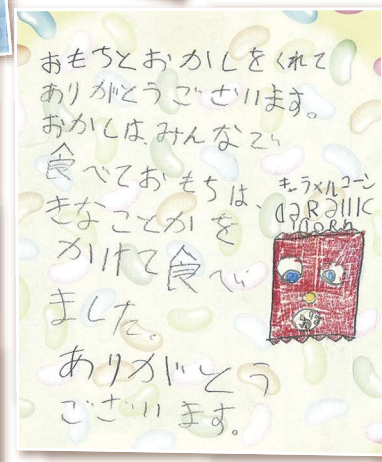 おもちとおかしをくれて
ありがとうございます。
おかしは、みんなで
食べておもちは、
きなことかを
かけて食べ
ました。
ありがとう
ございます。
キャラメルコーン